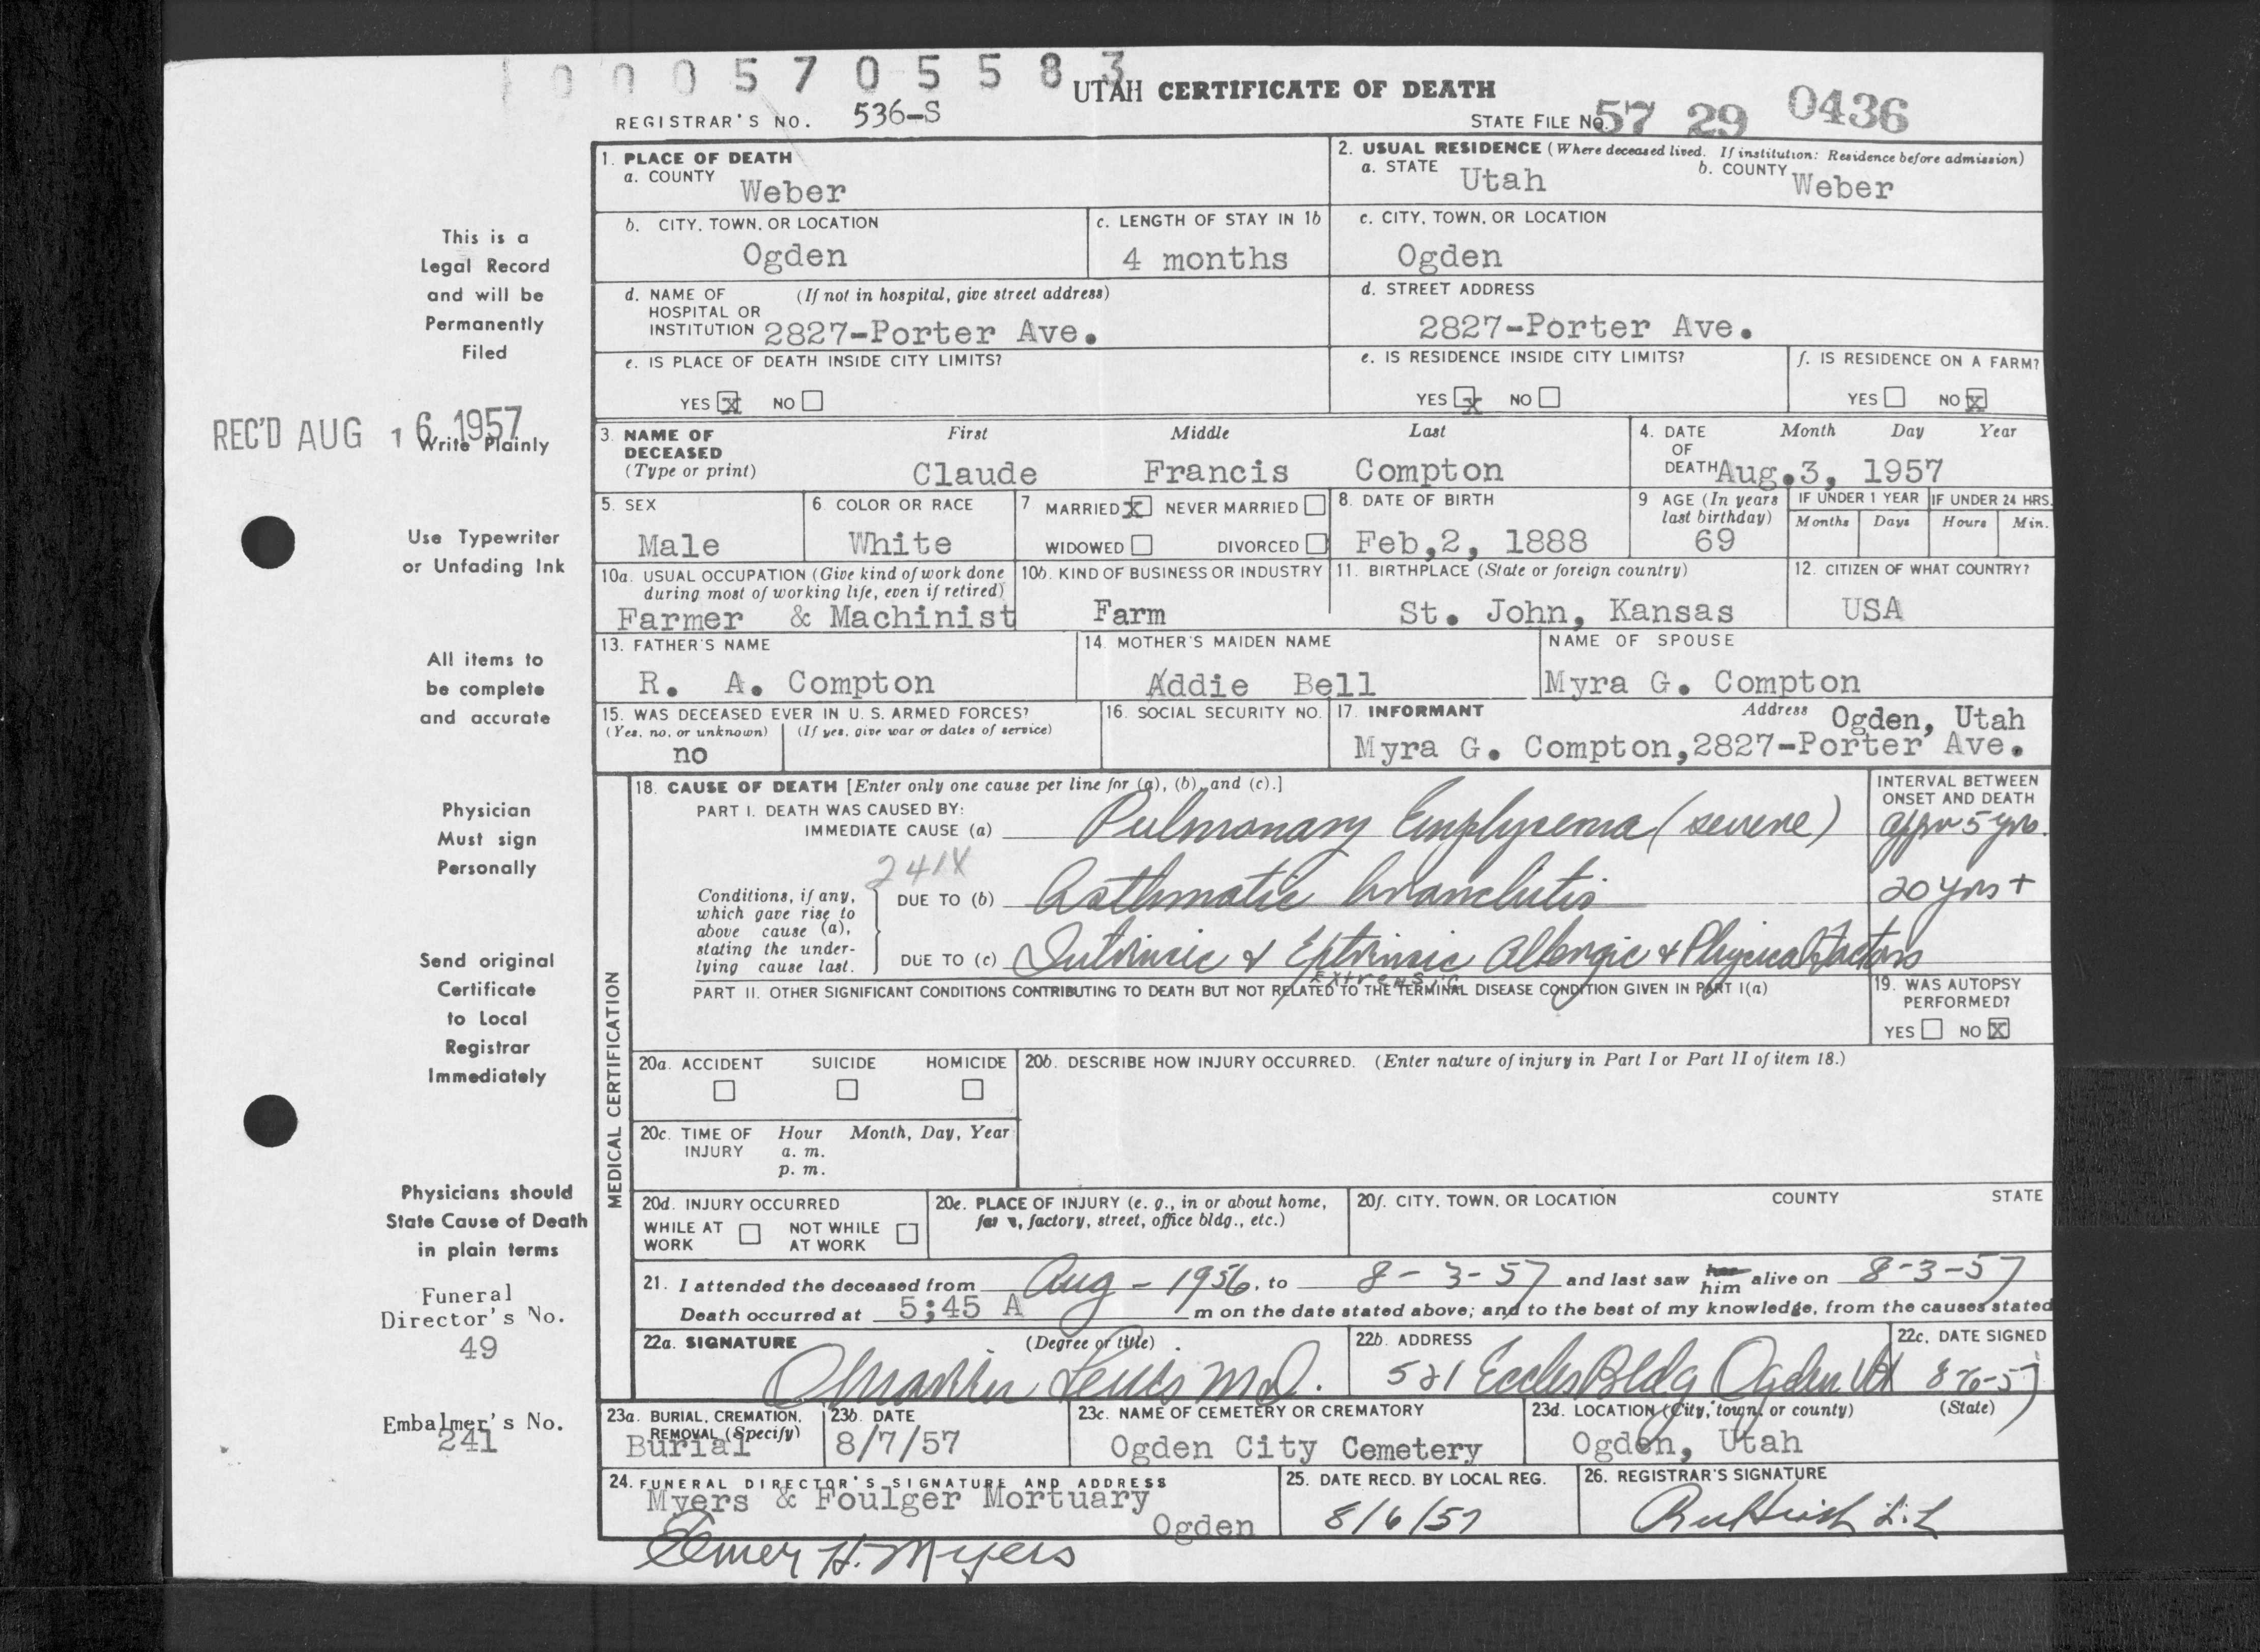 0 0 0 5 7 0 5 5 8 3
UTAH CERTIFICATE OF DEATH
REGISTRAR'S NO. 536-S
STATE FILE NO. 57 29 0436
1. PLACE OF DEATH
a. COUNTY Weber
2. USUAL RESIDENCE (Where deceased lived. If institution: Residence before admission)
a. STATE Utah b. COUNTY Weber
b. CITY, TOWN, OR LOCATION Ogden
c. LENGTH OF STAY IN 1b 4 months
c. CITY, TOWN, OR LOCATION Ogden
d. NAME OF HOSPITAL OR INSTITUTION (If not in hospital, give street address) 2827-Porter Ave.
d. STREET ADDRESS 2827-Porter Ave.
e. IS PLACE OF DEATH INSIDE CITY LIMITS?
YES X NO
e. IS RESIDENCE INSIDE CITY LIMITS?
YES X NO
f. IS RESIDENCE ON A FARM?
YES NO X
3. NAME OF DECEASED (Type or print)
First Middle Last
Claude Francis Compton
4. DATE OF DEATH Month Day Year
Aug.3, 1957
5. SEX Male
6. COLOR OR RACE White
7 MARRIED X NEVER MARRIED
WIDOWED DIVORCED
8. DATE OF BIRTH Feb,2, 1888
9 AGE (In years last birthday) 69
IF UNDER 1 YEAR Months Days
IF UNDER 24 HRS. Hours Min.
10a. USUAL OCCUPATION (Give kind of work done during most of working life, even if retired)
Farmer & Machinist
10b. KIND OF BUSINESS OR INDUSTRY
Farm
11. BIRTHPLACE (State or foreign country)
St. John, Kansas
12. CITIZEN OF WHAT COUNTRY?
USA
13. FATHER'S NAME
R. A. Compton
14. MOTHER'S MAIDEN NAME
Addie Bell
NAME OF SPOUSE
Myra G. Compton
15. WAS DECEASED EVER IN U. S. ARMED FORCES?
(Yes, no, or unknown) (If yes, give war or dates of service)
no
16. SOCIAL SECURITY NO.
17. INFORMANT Address Ogden, Utah
Myra G. Compton,2827-Porter Ave.
MEDICAL CERTIFICATION
18. CAUSE OF DEATH [Enter only one cause per line for (a), (b), and (c).]
PART I. DEATH WAS CAUSED BY:
IMMEDIATE CAUSE (a) Pulmonary Emphysema (severe)
INTERVAL BETWEEN ONSET AND DEATH
5 yrs.
241X
Conditions, if any, which gave rise to above cause (a), stating the underlying cause last.
DUE TO (b) Asthmatic bronchitis 20 yrs +
DUE TO (c) Intrinsic & Extrinsic allergic & Physical factors
Extrensic
PART II. OTHER SIGNIFICANT CONDITIONS CONTRIBUTING TO DEATH BUT NOT RELATED TO THE TERMINAL DISEASE CONDITION GIVEN IN PART I(a)
19. WAS AUTOPSY PERFORMED?
YES NO X
20a. ACCIDENT SUICIDE HOMICIDE
20b. DESCRIBE HOW INJURY OCCURRED. (Enter nature of injury in Part I or Part II of item 18.)
20c. TIME OF INJURY Hour Month, Day, Year
a. m.
p. m.
20d. INJURY OCCURRED
WHILE AT WORK NOT WHILE AT WORK
20e. PLACE OF INJURY (e. g., in or about home, farm, factory, street, office bldg., etc.)
20f. CITY, TOWN, OR LOCATION COUNTY STATE
21. I attended the deceased from Aug - 1956, to 8-3-57 and last saw her him alive on 8-3-57
Death occurred at 5;45 A m on the date stated above; and to the best of my knowledge, from the causes stated
22a. SIGNATURE (Degree or title)
M.D.
22b. ADDRESS
521 Eccles Bldg Ogden Ut
22c. DATE SIGNED
8-6-57
23a. BURIAL, CREMATION, REMOVAL (Specify)
Burial
23b. DATE
8/7/57
23c. NAME OF CEMETERY OR CREMATORY
Ogden City Cemetery
23d. LOCATION (City, town, or county) (State)
Ogden, Utah
24. FUNERAL DIRECTOR'S SIGNATURE AND ADDRESS
Myers & Foulger Mortuary
Ogden
Elmer H. Myers
25. DATE RECD. BY LOCAL REG.
8/6/57
26. REGISTRAR'S SIGNATURE
This is a
Legal Record
and will be
Permanently
Filed
REC'D AUG 16 1957
Write Plainly
Use Typewriter
or Unfading Ink
All items to
be complete
and accurate
Physician
Must sign
Personally
Send original
Certificate
to Local
Registrar
Immediately
Physicians should
State Cause of Death
in plain terms
Funeral
Director's No.
49
Embalmer's No.
241